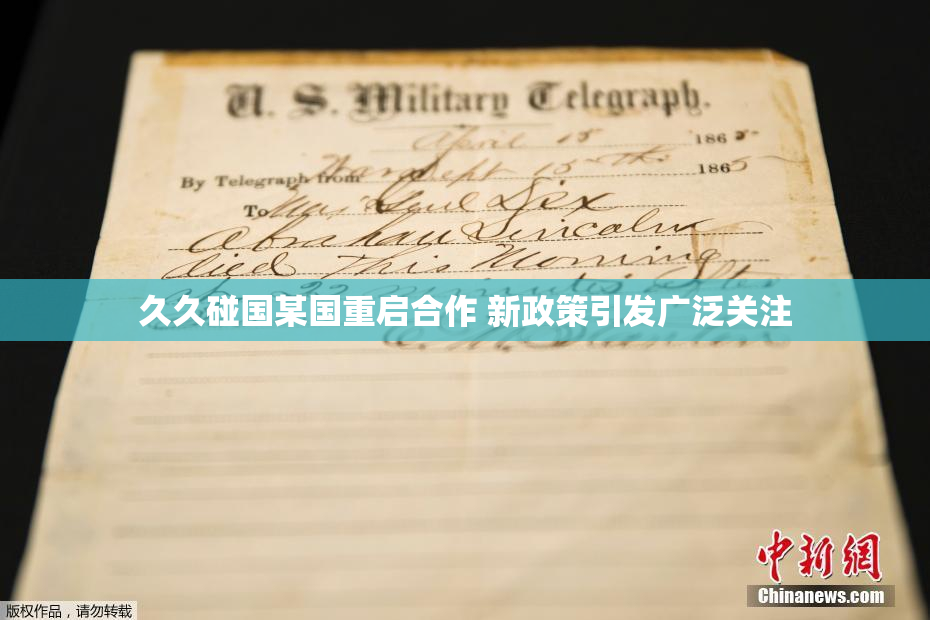 U. S. Military Telegraph.
April 15 1865
By Telegraph from War Dept 15th 1865
To Maj Genl Dix
Abraham Lincoln
died This Morning
久久碰国某国重启合作 新政策引发广泛关注
中新网
Chinanews.com
版权作品，请勿转载